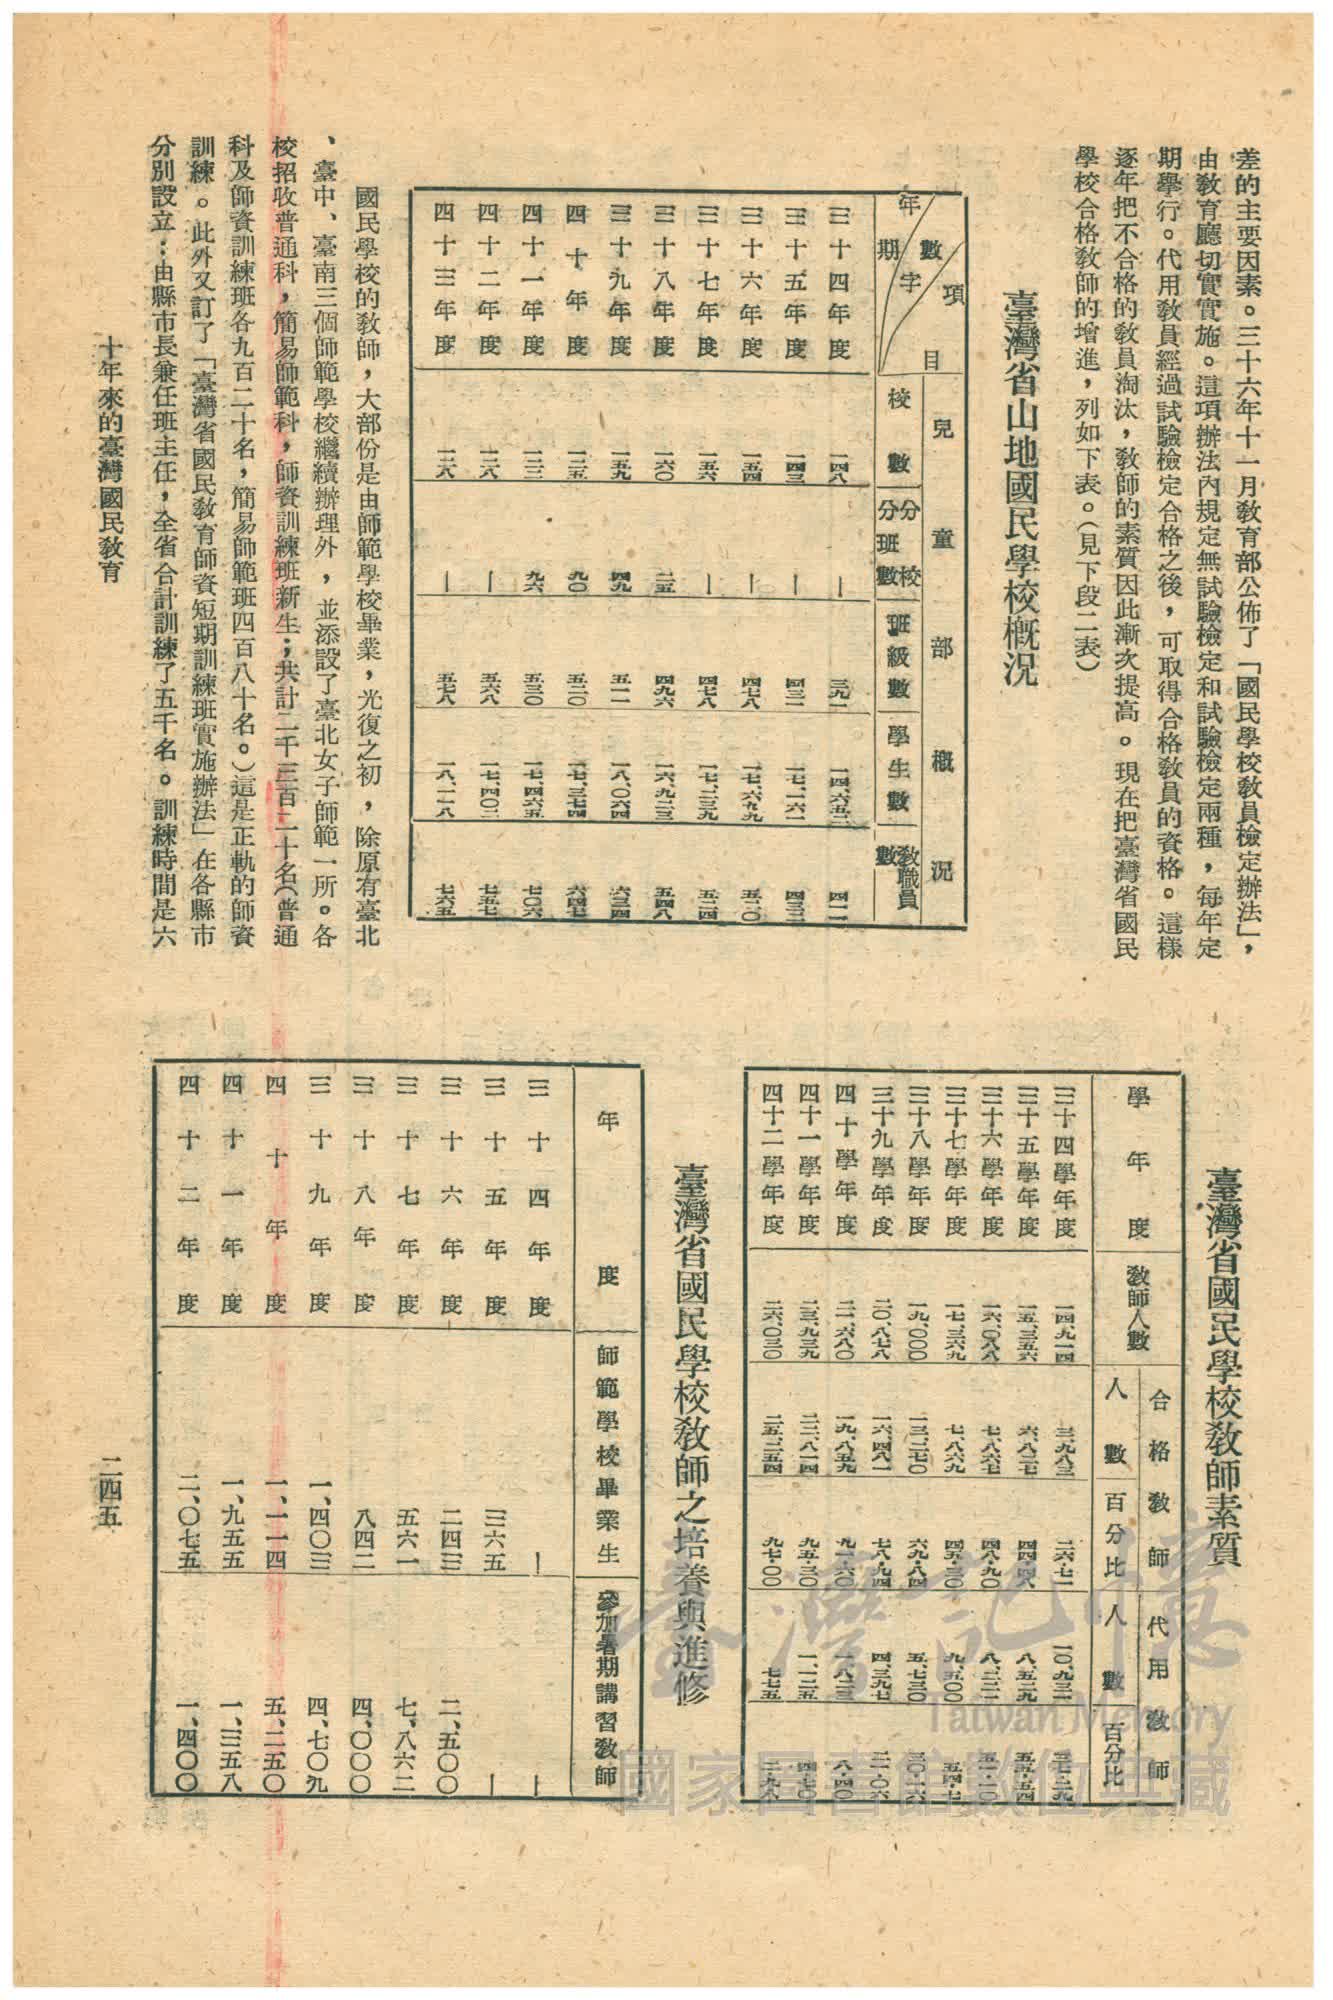 差的主要因素。三十六年十一月教育部公佈了「國民學校教員檢定辦法」，
由教育廳切實實施。這項辦法內規定無試驗檢定和試驗檢定兩種，每年定
期舉行。代用教員經過試驗檢定合格之後，可取得合格教員的資格。這樣
逐年把不合格的教員淘汰，教師的素質因此漸次提高。現在把臺灣省國民
學校合格教師的增進，列如下表。（見下段二表）
臺灣省山地國民學校概況
項目 數字 年期 兒童部概況
校數 分校分班數 班級數 學生數 教職員數
三十四年度 一四八 — 三九一 一四、六五二 四一一
三十五年度 一四三 — 四三一 一七、一六一 四三三
三十六年度 一五四 — 四七八 一七、六九九 五一〇
三十七年度 一五六 — 四七八 一七、三三九 五二四
三十八年度 一六〇 二五 四九六 一六、九二三 五四八
三十九年度 一五九 四九 五一一 一八、〇六四 六三四
四十年度 一三五 九〇 五二〇 一七、三七四 六四七
四十一年度 一三二 九六 五三〇 一七、四六五 七〇六
四十二年度 一二八 — 五六八 一七、四〇二 七五七
四十三年度 一二六 — 五七八 一八、一二八 七六五
國民學校的教師，大部份是由師範學校畢業，光復之初，除原有臺北
、臺中、臺南三個師範學校繼續辦理外，並添設了臺北女子師範一所。各
校招收普通科，簡易師範科，師資訓練班新生；共計二千三百二十名（普通
科及師資訓練班各九百二十名，簡易師範班四百八十名。）這是正軌的師資
訓練。此外又訂了「臺灣省國民教育師資短期訓練班實施辦法」在各縣市
分別設立：由縣市長兼任班主任，全省合計訓練了五千名。訓練時間是六
十年來的臺灣國民教育
臺灣省國民學校教師素質
學年度 教師人數 合格教師 人數 百分比 代用教師 人數 百分比
三十四學年度 一四、九一四 三、九八三 二六・七一 一〇、九三一 三七・二九
三十五學年度 一五、三五六 六、八二七 四四・四六 八、五二九 五五・五四
三十六學年度 一六、〇八八 七、八六七 四八・九〇 八、二二一 五一・一〇
三十七學年度 一七、三六九 七、八六九 四五・三〇 九、五〇〇 五四・七
三十八學年度 一九、〇〇〇 一三、二七〇 六九・八四 五、七三〇 三〇・一六
三十九學年度 二〇、八七八 一六、四八一 七八・九四 四、三九七 二一・〇六
四十學年度 二一、六八〇 一九、八五九 九一・六〇 一八二三 八・四〇
四十一學年度 二三、九三九 二二、八一四 九五・三〇 一、一二五 四・七〇
四十二學年度 二六、〇三〇 二五、二五四 九七・〇〇 七七五 二・九八
臺灣省國民學校教師之培養與進修
年度 師範學校畢業生 參加暑期講習教師
三十四年度 — —
三十五年度 三六五 —
三十六年度 二四三 二、五〇〇
三十七年度 五六一 七、八六二
三十八年度 八四二 四、〇〇〇
三十九年度 一、四〇三 四、七〇九
四十年度 一、一一四 五、二五〇
四十一年度 一、九五五 一、三五八
四十二年度 二、〇七五 一、四〇〇
二四五
臺灣記憶
Taiwan Memory
國家圖書館數位典藏